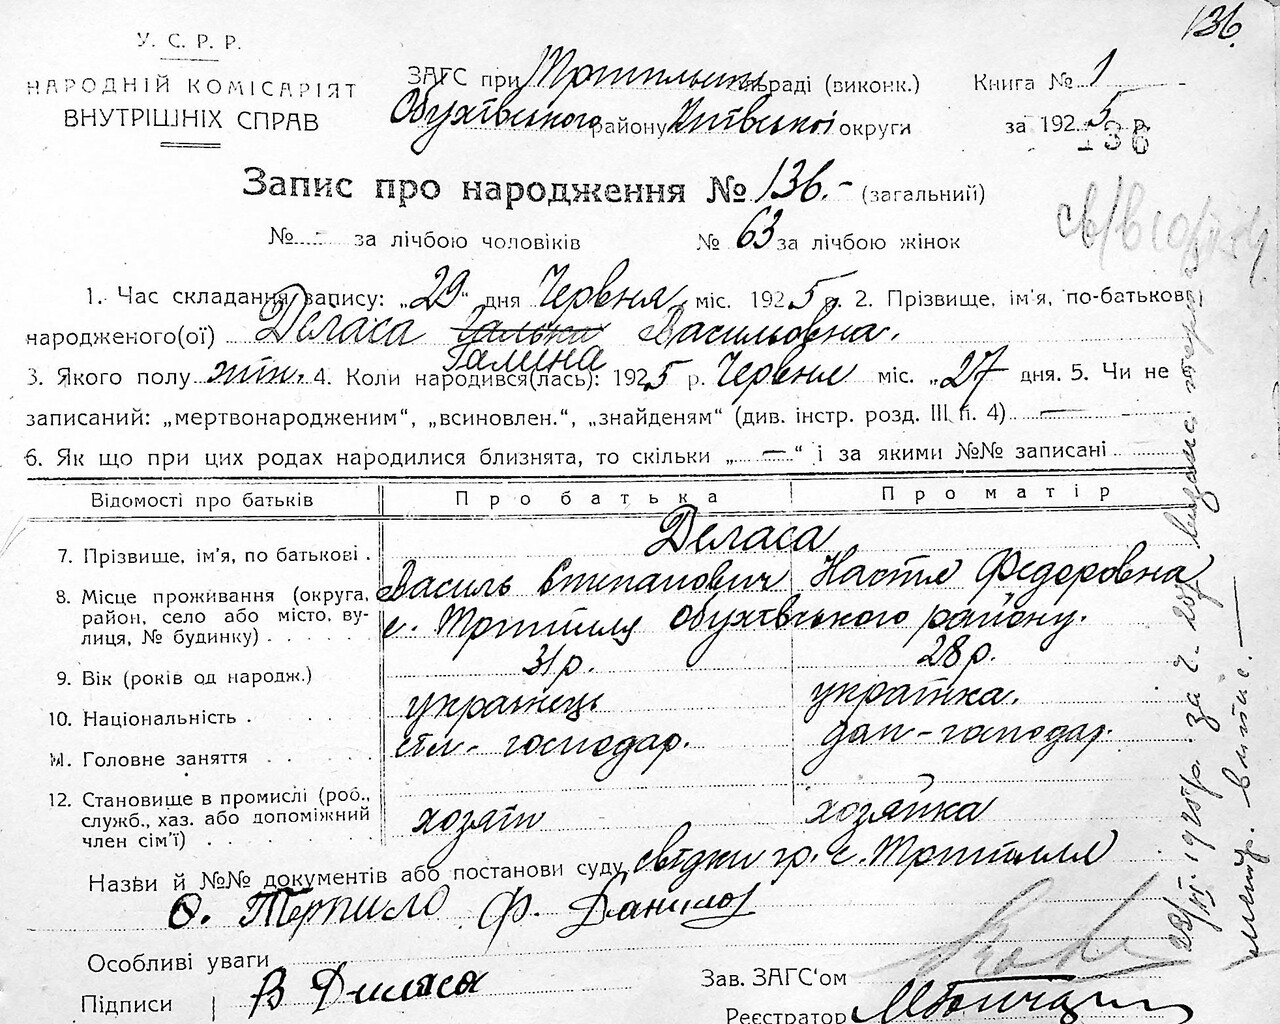 136.
У. С. Р. Р.
НАРОДНІЙ КОМІСАРІЯТ
ВНУТРІШНІХ СПРАВ
ЗАГС при Трипільськ раді (виконк.)
Обухівського району Київської округи
Книга № 1
за 1925 р.
136
Запис про народження № 136.- (загальний)
№ - за лічбою чоловіків № 63 за лічбою жінок
1. Час складання запису: „29" дня Червня міс. 1925 р. 2. Прізвище, ім'я, по-батькові
народженого(ої) Деласа Галька Васильовна.
Галина
3. Якого полу жін. 4. Коли народився(лась): 1925 р. Червня міс. „27 дня. 5. Чи не
записаний: „мертвонародженим", „всиновлен.", „знайденям" (див. інстр. розд. III п. 4) —
6. Як що при цих родах народилися близнята, то скільки „ — " і за якими №№ записані
Відомості про батьків Про батька Про матір
7. Прізвище, ім'я, по батькові . Деласа
Василь Степанович Настя Федоровна
8. Місце проживання (округа, район, село або місто, вулиця, № будинку) с. Трипілля Обухівського району.
9. Вік (років од народж.) 31 р. 28 р.
10. Національність українець українка.
11. Головне заняття сіл-господар. дом-господар.
12. Становище в промислі (роб., служб., хаз. або допоміжний член сім'ї) хозяїн хозяйка
Назви й №№ документів або постанови суду свідки гр. с. Трипілля
Ф. Данило
Особливі уваги
Підписи В Диласа
Зав. ЗАГС'ом
Реєстратор